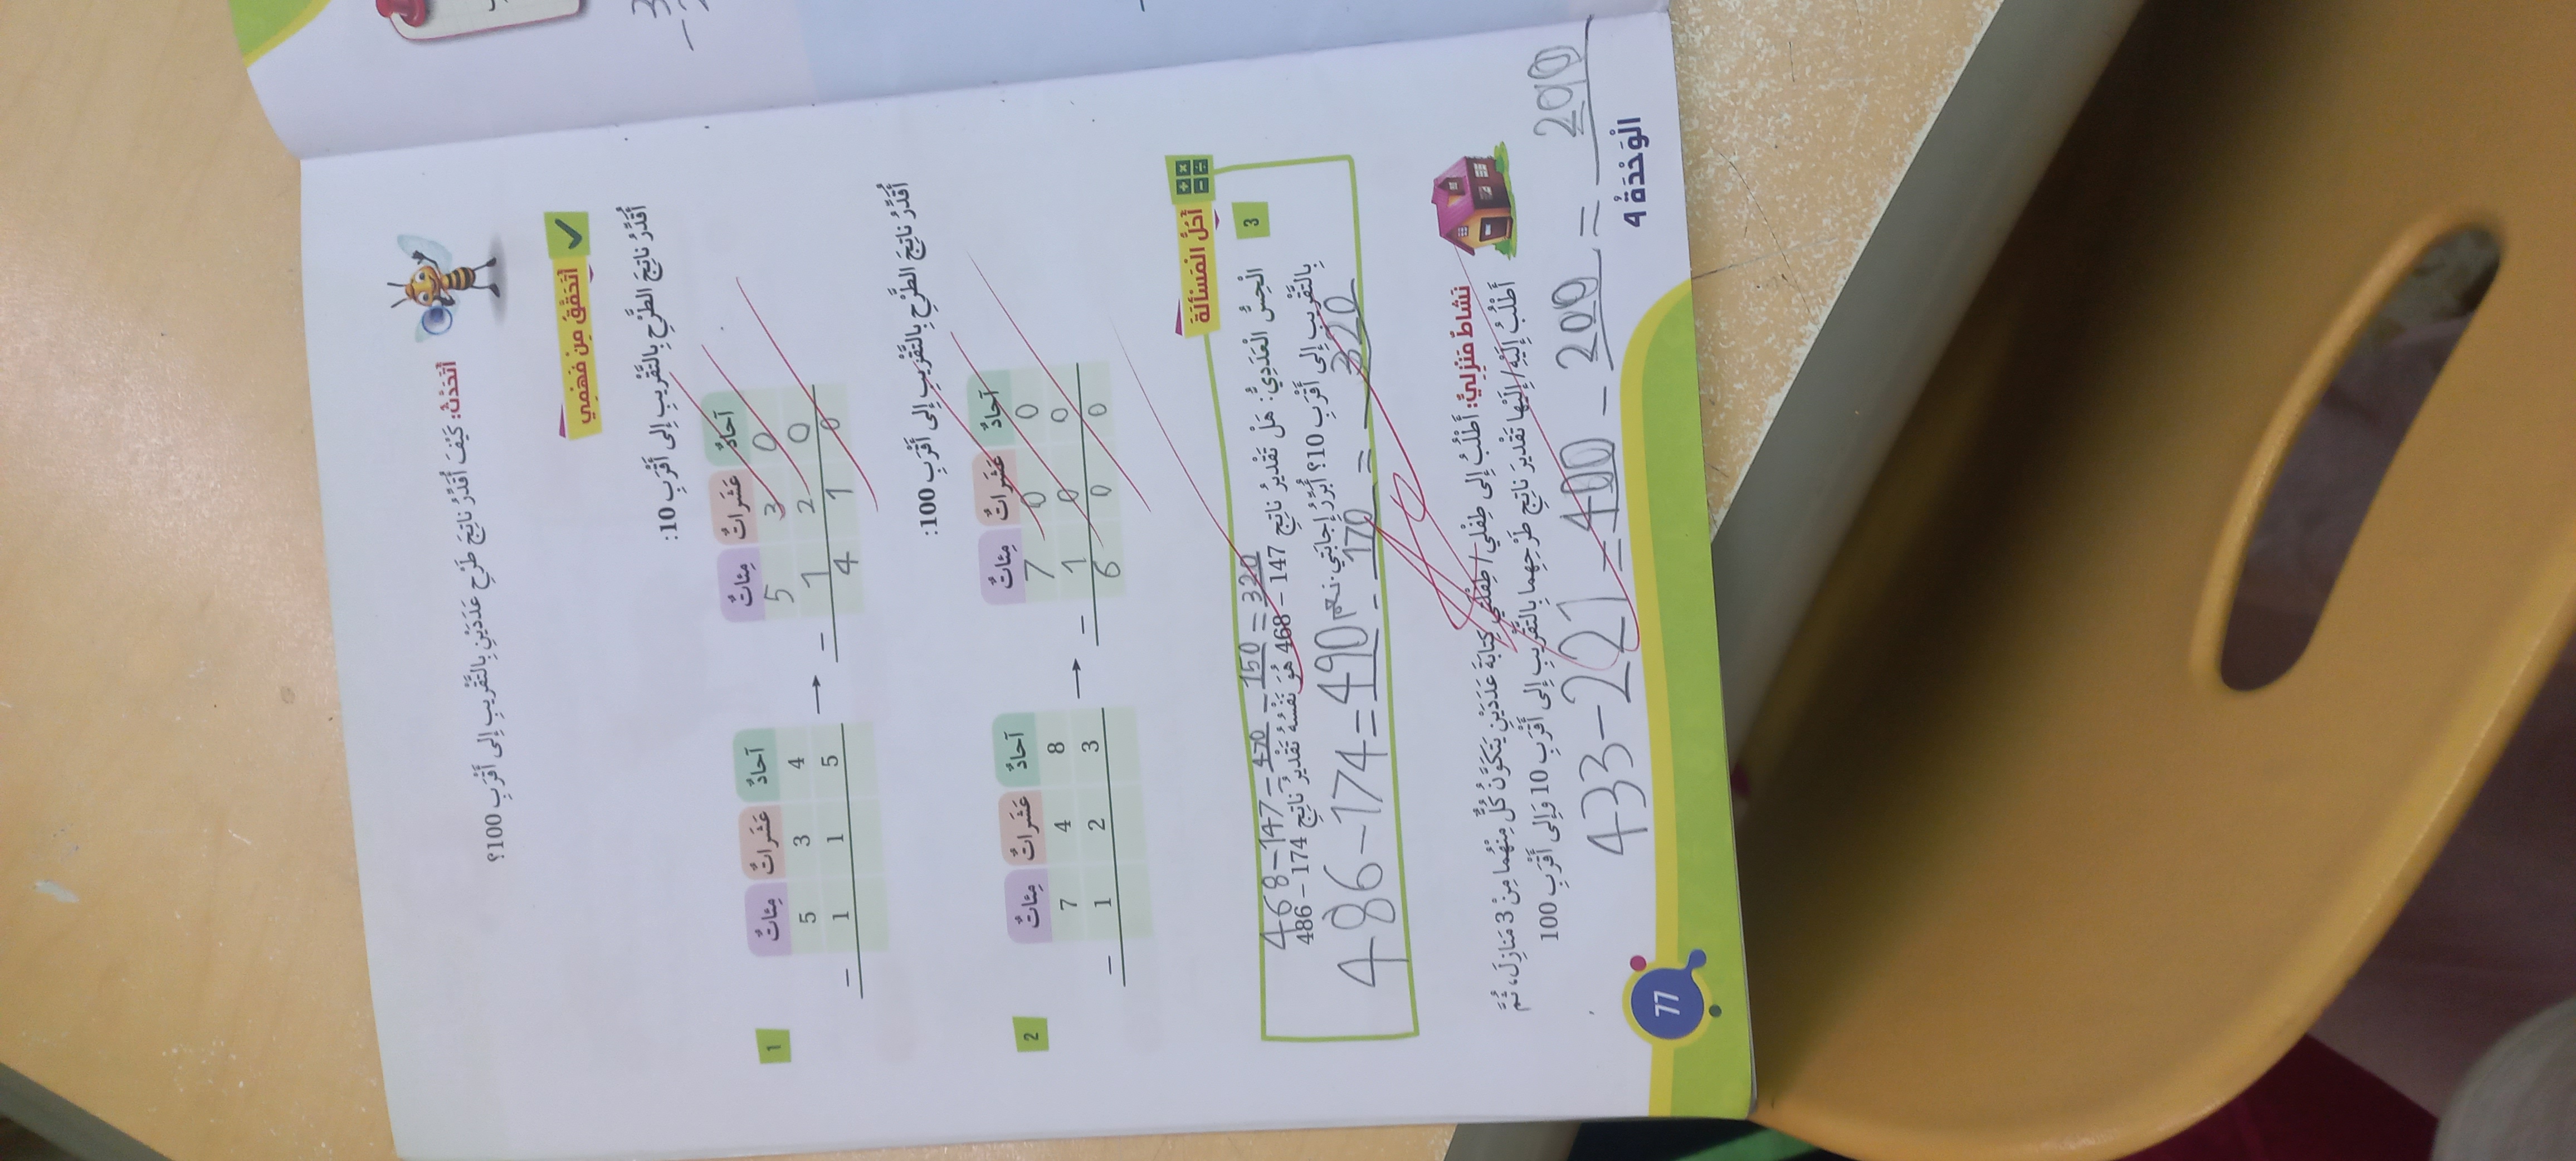 أَتَحَدَّثُ: كَيْفَ أُقَدِّرُ نَاتِجَ طَرْحِ عَدَدَيْنِ بِالتَّقْرِيبِ إِلَى أَقْرَبِ 100؟
أَتَحَقَّقُ مِنْ فَهْمِي
أُقَدِّرُ نَاتِجَ الطَّرْحِ بِالتَّقْرِيبِ إِلَى أَقْرَبِ 10:
1
مِئَاتٌ عَشَرَاتٌ آحَادٌ
5 3 4
− 1 1 5
→
مِئَاتٌ عَشَرَاتٌ آحَادٌ
5 3 0
− 1 2 0
4 1 0
أُقَدِّرُ نَاتِجَ الطَّرْحِ بِالتَّقْرِيبِ إِلَى أَقْرَبِ 100:
2
مِئَاتٌ عَشَرَاتٌ آحَادٌ
7 4 8
− 1 2 3
→
مِئَاتٌ عَشَرَاتٌ آحَادٌ
7 0 0
− 1 0 0
6 0 0
أَحُلُّ الْمَسْأَلَةَ
468 − 147 = 470 − 150 = 320
3 الْحِسُّ الْعَدَدِيُّ: هَلْ تَقْدِيرُ نَاتِجِ 147 − 468 هُوَ نَفْسُهُ تَقْدِيرُ نَاتِجِ 174 − 486
بِالتَّقْرِيبِ إِلَى أَقْرَبِ 10؟ أُبَرِّرُ إِجَابَتِي. نعم
486 − 174 = 490 − 170 = 320
نَشَاطٌ مَنْزِلِيٌّ: أَطْلُبُ إِلَى طِفْلِي / طِفْلَتِي كِتَابَةَ عَدَدَيْنِ يَتَكَوَّنُ كُلٌّ مِنْهُمَا مِنْ 3 مَنَازِلَ، ثُمَّ
أَطْلُبُ إِلَيْهِ/ إِلَيْهَا تَقْدِيرَ نَاتِجِ طَرْحِهِمَا بِالتَّقْرِيبِ إِلَى أَقْرَبِ 10 وَإِلَى أَقْرَبِ 100
433 − 221 = 400 − 200 = 200
الْوَحْدَةُ 9
77